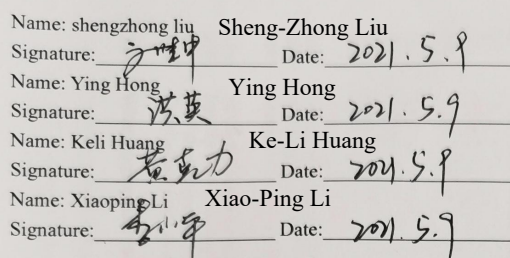 Name: shengzhong liu Sheng-Zhong Liu
Signature: Date: 2021.5.9
Name: Ying Hong Ying Hong
Signature: 洪英 Date: 2021.5.9
Name: Keli Huang Ke-Li Huang
Signature: 黄克力 Date: 2021.5.9
Name: Xiaoping Li Xiao-Ping Li
Signature: 李小平 Date: 2021.5.9